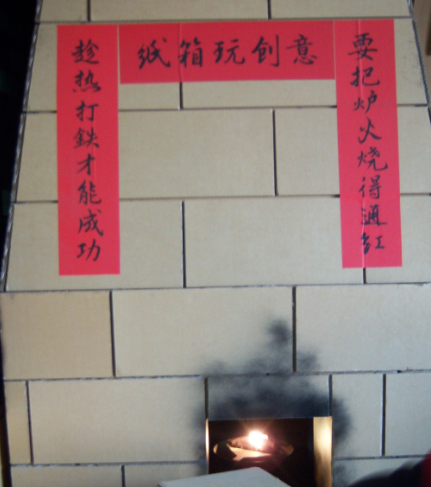 纸箱玩创意
要把炉火烧得通红
趁热打鉄才能成功